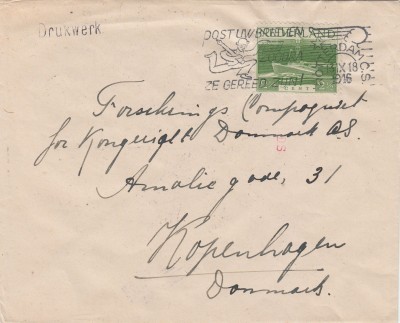 Drukwerk
POST UW BRIEVEN
ZE GEREED ZIJN!
CENT
Forsknings Compagniet
for Kongeriget Danmark A.S.
Amaliegade, 31
Kopenhagen
Danmark.